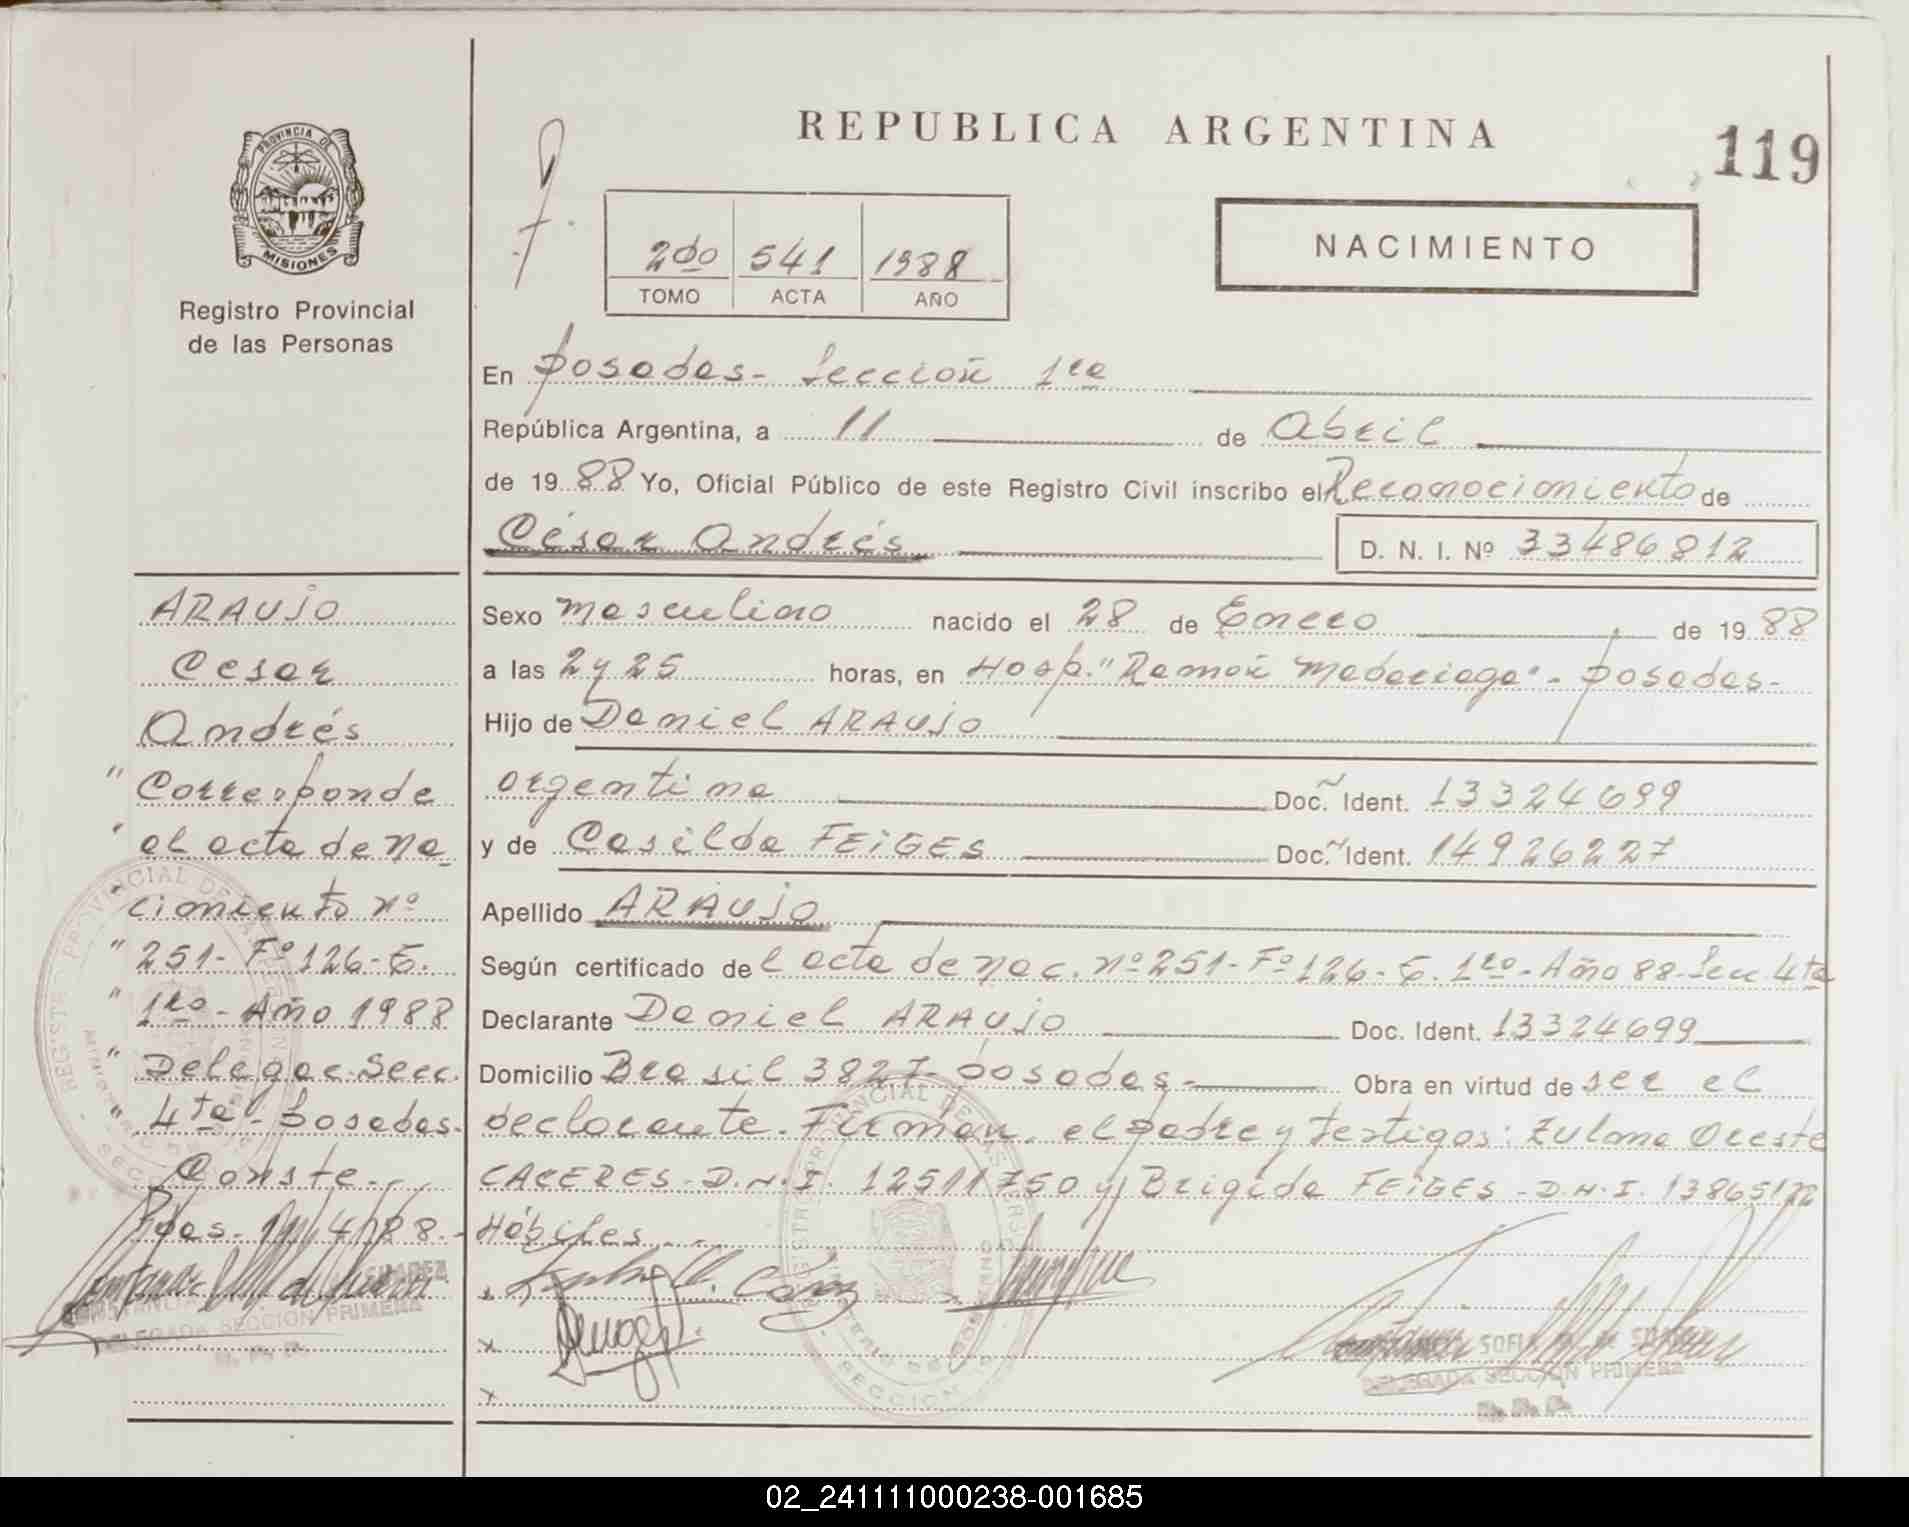 PROVINCIA DE
MISIONES
Registro Provincial
de las Personas
ARAUJO
Cesar
Andrés
" Corresponde
" al acta de Na-
cimiento nº
" 251- Fº 126- T.
" 1ro - Año 1988
" Delegac. Secc.
" 4ta - Posadas.
Conste.-
Pdas. 11/4/88.-
DELEGADA SECCION PRIMERA
REPUBLICA ARGENTINA
119
2do 541 1988
TOMO ACTA AÑO
NACIMIENTO
En Posadas- Sección 1ra
República Argentina, a 11 de Abril
de 1988 Yo, Oficial Público de este Registro Civil inscribo el Reconocimiento de
César Andrés D. N. I. Nº 33486812
Sexo Masculino nacido el 28 de Enero de 1988
a las 2 y 25 horas, en Hosp. "Ramón Madariaga"- Posadas-
Hijo de Daniel ARAUJO
argentina Doc. Ident. 13324699
y de Casilda FEIGES Doc. Ident. 14926227
Apellido ARAUJO
Según certificado del acta de nac. nº 251- Fº 126- T. 1ro- Año 88- Secc 4ta
Declarante Daniel ARAUJO Doc. Ident. 13324699
Domicilio Brasil 3827- Posadas- Obra en virtud de ser el
declarante. Firman, el padre y testigos: Zulma Oreste
CACERES - D.N.I. 12511750 y Brigida FEIGES - D.N.I.
Hábiles.-
DELEGADA SECCION PRIMERA
02_241111000238-001685